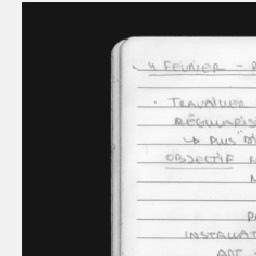 4 FEVRIER -
• TRAVAILLER
RÉGULARIS
↳ PLUS "DI
OBJECTIF
INSTALLAT
ART